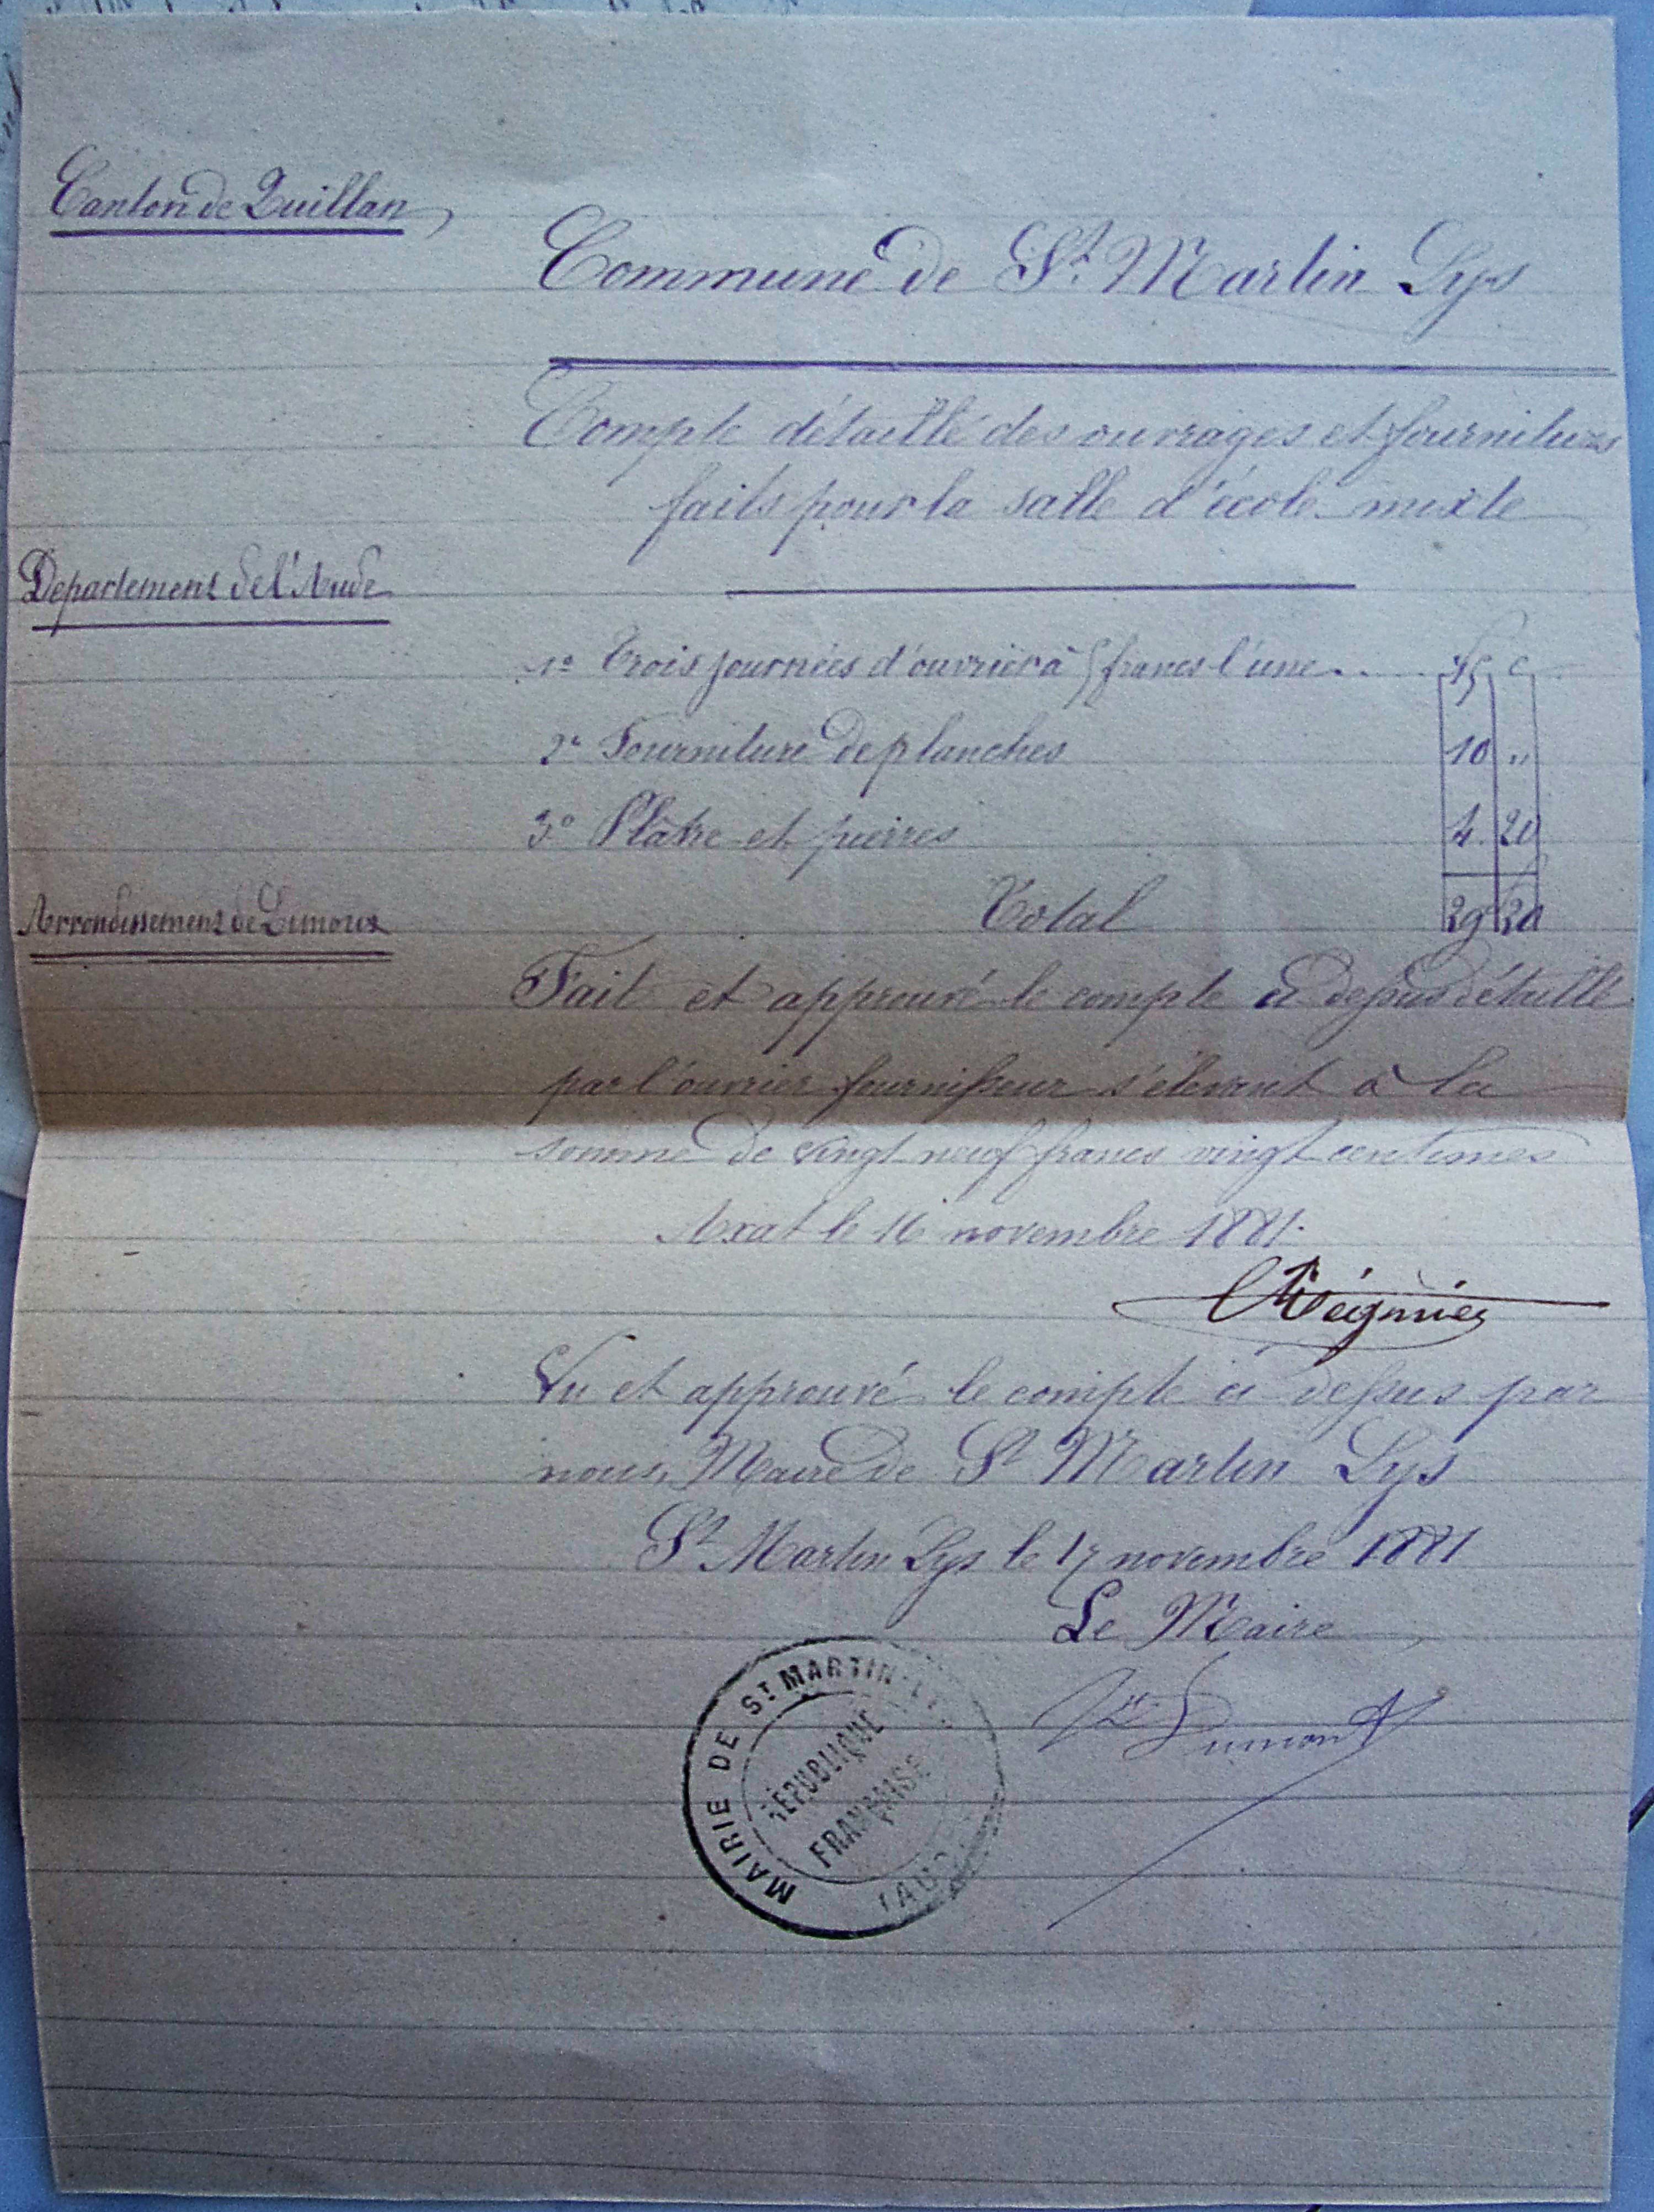 Canton de Quillan
Commune de St Martin Lys
Compte détaillé des ouvrages et fournitures
faits pour la salle d'école mixte
Departement de l'Aude
1º Trois journées d'ouvrier à 5 francs l'une.. 15 c
2º Fourniture de planches 10 "
3º Plâtre et pierres 4. 20
Arrondissement de Limoux
Total 29 20
Fait et approuvé le compte ci dessus détaillé
par l'ouvrier fournisseur s'élevant à la
somme de vingt neuf francs vingt centimes
Axat le 16 novembre 1881.
Vu et approuvé le compte ci dessus par
nous, Maire de St Martin Lys
St Martin Lys le 17 novembre 1881
Le Maire
MAIRIE DE ST MARTIN
RÉPUBLIQUE
FRANÇAISE